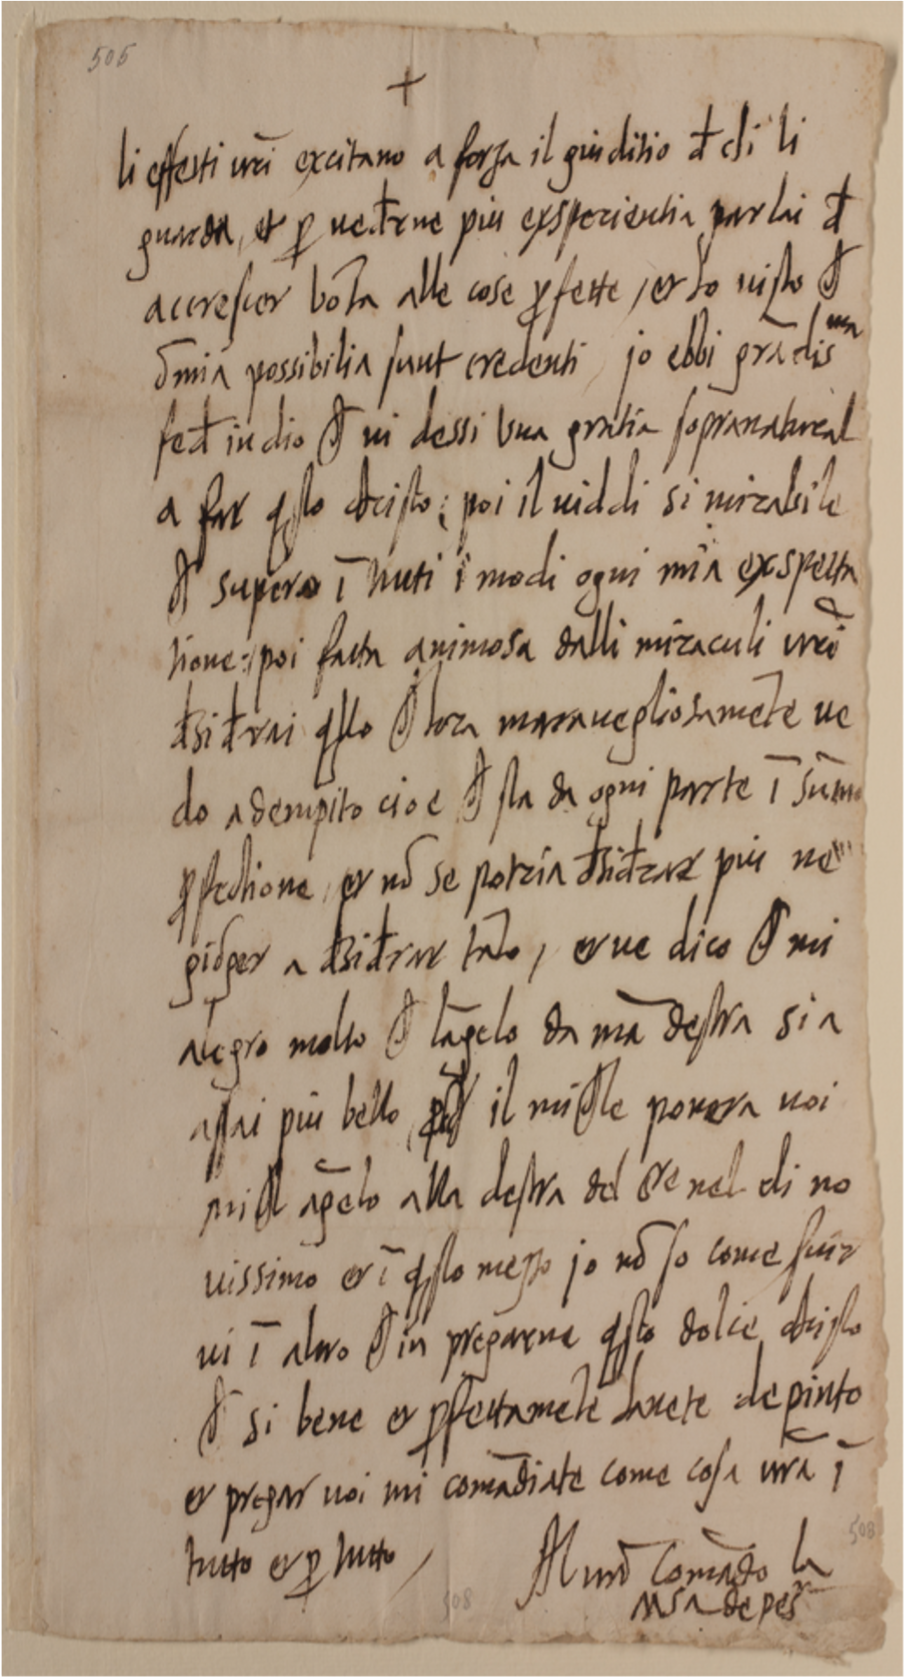 505
+
li effetti vr̄i excitano a forza il giuditio đ chi li
guarda, et p ueđrne piu exsperientia parlai đ
accrescer bōta alle cose pfette, et ho uisto ch
ōmia possibilia sunt credenti, io ebbi grādis ma
feđ in dio ch vi dessi una gratia sopranatural
a far qsto christo; poi il viddi si mirabile
ch supero ī tutti i modi ogni mia exspetta
tione: poi facta animosa dalli miraculi vr̄i
đsiđrai qllo ch hora maravegliosamēte ve
do adempito cioe ch sta da ogni parte ī sūma
pfectione, et nō se potria đsiđrar piu ne
giōger a đsiđrar tāto, et ve dico ch mi
alegro molto ch l'āgelo da mā destra sia
assai piu bello, il michele ponera voi
michel āgelo alla destra del nel di no
vissimo et ī qsto mezzo io nō so come servir
vi ī altro ch in pregarne qsto dolce christo
ch si bene et pfettamēte havete depinto
et pregar voi mi comādiate come cosa vr̄a ī
tutto et p tutto,
Al vr̄o comādo la
msa de pesr̄
508
508